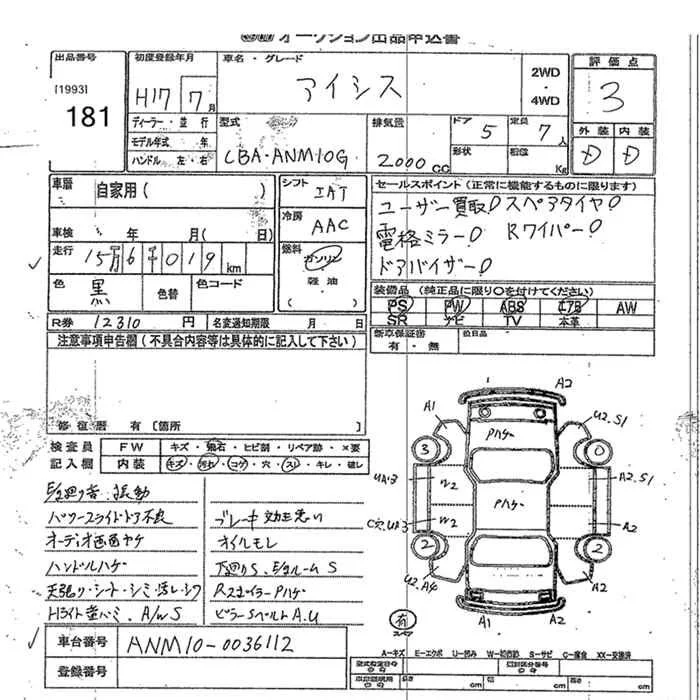 オークション出品申込書
出品番号
[1993]
181
初度登録年月
H17 7月
車名・グレード
アイシス
2WD
・
4WD
評価点
3
ディーラー・並行
モデル年式 年
ハンドル 左・右
型式
CBA-ANM10G
排気量
2000cc
ドア
5
形状
定員
7人
積載
Kg
外装 内装
D D
車歴
自家用( )
シフト
IAT
セールスポイント(正常に機能するものに限ります)
ユーザー買取! スペアタイヤ!
電格ミラー! Rワイパー!
ドアバイザー!
冷房
AAC
車検 年 月(日)
走行
15万6千019km
燃料
ガソリン
・
軽油
色
黒
色替
色コード
装備品 (純正品に限り○を付けてください)
PS PW ABS エアB AW
SR ナビ TV 本革
R券 12310円
名変通知期限 月 日
新車保証書
有・無
注意事項申告欄(不具合内容等は具体的に記入して下さい)
修復歴 有[箇所
検査員
記入欄
FW キズ・飛石・ヒビ割・リペア跡・×要
内装 キズ・汚れ・コゲ・穴・スレ・キレ・破レ
パワースライドドア不良
オーディオ画面ヤケ
ハンドルハゲ
天張り・シート・シミ・汚レ・シワ
A/W S
ブレーキ効き悪い
オイルモレ
下廻りS、E/gルームS
RスポイラーPハゲ
A1
A2
Pハゲ
U2.S1
3
0
UA3
W2
A2.S1
Pハゲ
W2
A2
2
2
U2.A4
A2
A1
A2
有
スペア
車台番号
ANM10-0036112
登録番号
A=キズ E=エクボ U=凹み W=補修跡 S=サビ C=腐食 XX=交換済
型式指定番号
類別区分番号
長さ cm
幅 cm
高さ cm